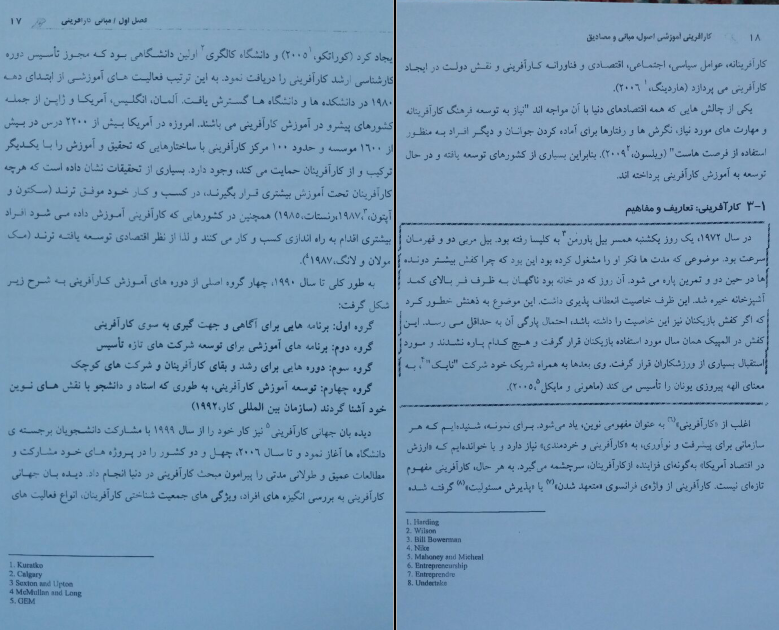 فصل اول / مبانی کارآفرینی ۱۷
یجاد کرد (کوراتکو،۱ ۲۰۰۵) و دانشگاه کالگری۲ اولین دانشگاهی بود که مجوز تأسیس دوره
کارشناسی ارشد کارآفرینی را دریافت نمود. به این ترتیب فعالیت های آموزشی از ابتدای دهه
۱۹۸۰ در دانشکده ها و دانشگاه ها گسترش یافت. آلمان، انگلیس، آمریکا و ژاپن از جمله
کشورهای پیشرو در آموزش کارآفرینی می باشند. امروزه در آمریکا بیش از ۲۲۰۰ درس در بیش
از ۱۶۰۰ موسسه و حدود ۱۰۰ مرکز کارآفرینی با ساختارهایی که تحقیق و آموزش را با یکدیگر
ترکیب و از کارآفرینان حمایت می کند، وجود دارد. بسیاری از تحقیقات نشان داده است که هرچه
کارآفرینان تحت آموزش بیشتری قرار بگیرند، در کسب و کار خود موفق ترند (سکتون و
آپتون،۳ ۱۹۸۷،رنستات، ۱۹۸۵) همچنین در کشورهایی که کارآفرینی آموزش داده می شود افراد
بیشتری اقدام به راه اندازی کسب و کار می کنند و لذا از نظر اقتصادی توسعه یافته ترند (مک
مولان و لانگ، ۱۹۸۷۴).
به طور کلی تا سال ۱۹۹۰، چهار گروه اصلی از دوره های آموزش کارآفرینی به شرح زیر
شکل گرفت:
گروه اول: برنامه هایی برای آگاهی و جهت گیری به سوی کارآفرینی
گروه دوم: برنامه های آموزشی برای توسعه شرکت های تازه تأسیس
گروه سوم: دوره هایی برای رشد و بقای کارآفرینان و شرکت های کوچک
گروه چهارم: توسعه آموزش کارآفرینی، به طوری که استاد و دانشجو با نقش های نوین
خود آشنا گردند (سازمان بین المللی کار، ۱۹۹۲)
دیده بان جهانی کارآفرینی۵ نیز کار خود را از سال ۱۹۹۹ با مشارکت دانشجویان برجسته ی
دانشگاه ها آغاز نمود و تا سال ۲۰۰۶، چهل و دو کشور را در پروژه های خود مشارکت و
مطالعات عمیق و طولانی مدتی را پیرامون مبحث کارآفرینی در دنیا انجام داد. دیده بان جهانی
کارآفرینی به بررسی انگیزه های افراد، ویژگی های جمعیت شناختی کارآفرینان، انواع فعالیت های
1. Kuratko
2. Calgary
3 Sexton and Upton
4 McMullan and Long
5. GEM
۱۸ کارآفرینی آموزشی اصول، مبانی و مصادیق
کارآفرینانه، عوامل سیاسی، اجتماعی، اقتصادی و فناورانه کارآفرینی و نقش دولت در ایجاد
کارآفرینی می پردازد (هاردینگ،۱ ۲۰۰۶).
یکی از چالش هایی که همه اقتصادهای دنیا با آن مواجه اند "نیاز به توسعه فرهنگ کارآفرینانه
و مهارت های مورد نیاز، نگرش ها و رفتارها برای آماده کردن جوانان و دیگر افراد به منظور
استفاده از فرصت هاست" (ویلسون، ۲۰۰۹۲). بنابراین بسیاری از کشورهای توسعه یافته و در حال
توسعه به آموزش کارآفرینی پرداخته اند.
۳-۱ کارآفرینی: تعاریف و مفاهیم
در سال ۱۹۷۲، یک روز یکشنبه همسر بیل باورمن۳ به کلیسا رفته بود. بیل مربی دو و قهرمان
سرعت بود. موضوعی که مدت ها فکر او را مشغول کرده بود این بود که چرا کفش بیشتر دونده
ها در حین دو و تمرین پاره می شود. آن روز که در خانه بود ناگهان به ظرف فر بالای کمد
آشپزخانه خیره شد. این ظرف خاصیت انعطاف پذیری داشت. این موضوع به ذهنش خطور کرد
که اگر کفش بازیکنان نیز این خاصیت را داشته باشد، احتمال پارگی آن به حداقل می رسد. این
کفش در المپیک همان سال مورد استفاده بازیکنان قرار گرفت و هیچ کدام پاره نشدند و مورد
استقبال بسیاری از ورزشکاران قرار گرفت. وی بعدها به همراه شریک خود شرکت "نایک"۴، به
معنای الهه پیروزی یونان را تأسیس می کند (ماهونی و مایکل۵، ۲۰۰۵).
اغلب از «کارآفرینی»(۶) به عنوان مفهومی نوین، یاد می‌شود. برای نمونه، شنیده‌ایم که هر
سازمانی برای پیشرفت و نوآوری، به «کارآفرینی و خردمندی» نیاز دارد و یا خوانده‌ایم که «ارزش
در اقتصاد آمریکا» به‌گونه‌ای فزاینده ازکارآفرینان، سرچشمه می‌گیرد. به هر حال، کارآفرینی مفهوم
تازه‌ای نیست. کارآفرینی از واژه‌ی فرانسوی «متعهد شدن»(۷) یا «پذیرش مسئولیت»(۸) گرفته شده
1. Harding
2. Wilson
3. Bill Bowerman
4. Nike
5. Mahoney and Micheal
6. Entrepreneurship
7. Entreprendre
8. Undertake